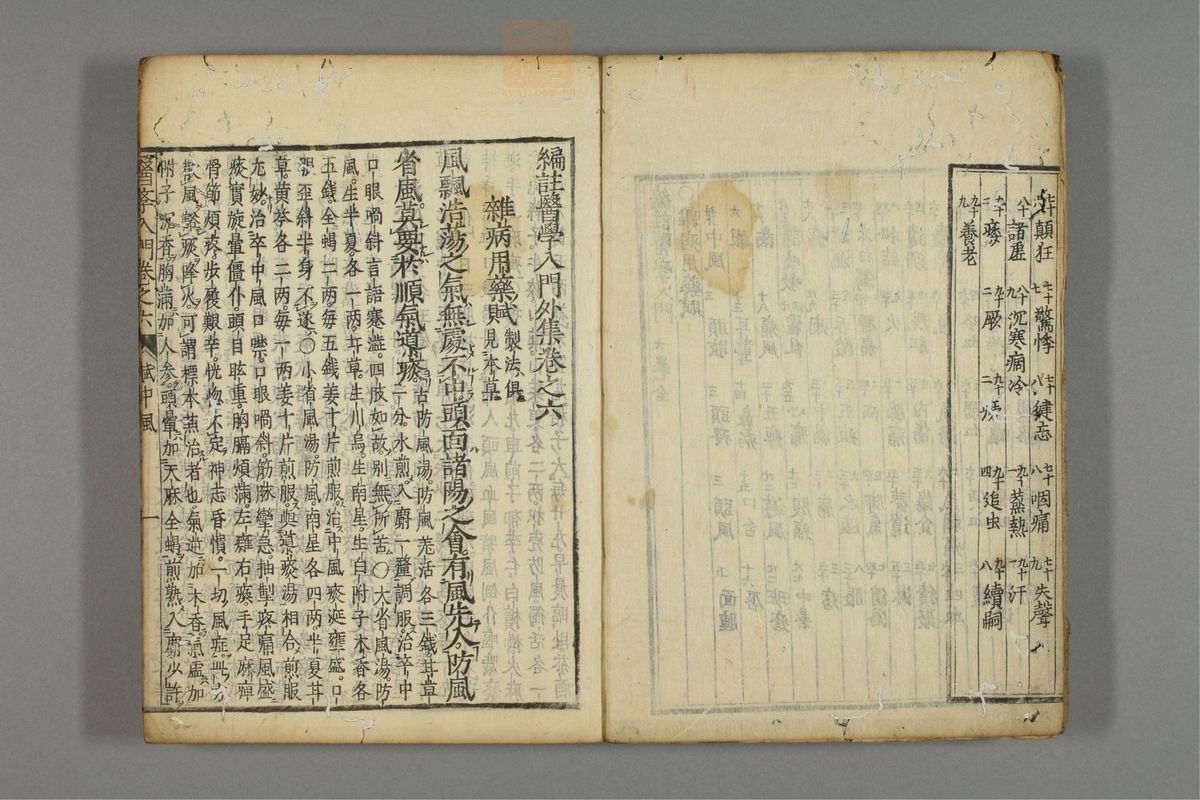 顛狂 七十 驚悸 七十八 健忘 七十八 咽痛 七十九 失聲
八十 諸虛 八十九 沉寒痼冷 九十一 蒸熱 九十一 汗
九十二 痿 九十二 厥 九十四 追虫 九十八 續嗣
九十九 養老
編註醫學入門外集卷之六
雜病用藥賦 製法俱見本草
風飄浩蕩之氣無處不中頭百諸陽之會有風先入防風
省風莫要於順氣道痰
口眼喎斜言語蹇澁四肢如故別無所苦〇大省風湯防
風生半夏各一兩甘草生川烏生南星生白附子木香各
五錢全蝎二兩每五錢姜十片煎服治中風痰涎壅盛口
眼歪斜半身不遂〇小省風湯防風南星各四兩半夏甘
草黃芩各二兩每一兩姜十片煎服與道痰湯相合煎服
尤妙治卒中風口噤口眼喎斜筋脉攣急抽掣疼痛風盛
痰實旋暈僵仆頭目眩重胸膈煩滿左癱右瘓手足麻痺
骨節煩疼步履艱辛恍惚不定神志昏憒一切風症
散風降火可謂標本兼治者也氣逆加木香氣虛加
附子沉香胸滿加人參頭暈加天麻全蝎煎熟入麝少許
醫學入門卷之六 賦中風 一